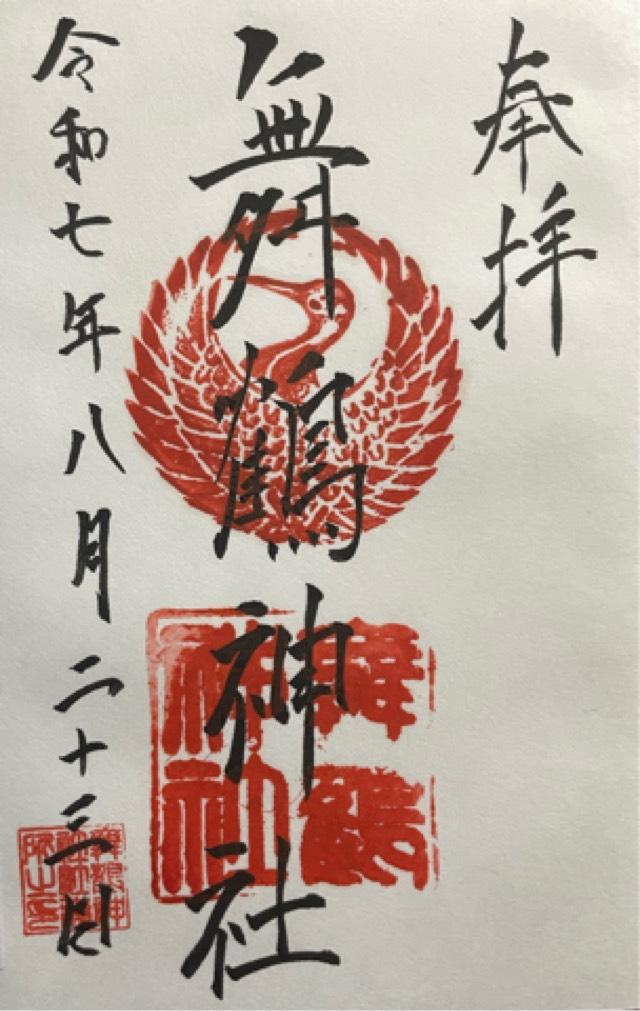 奉拝
舞鶴神社
令和七年八月二十三日
舞鶴
神社